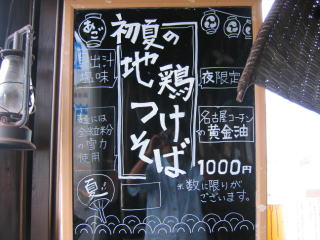 初夏の
地鶏
つけ
そば
あご
出汁
塩味
夜限定
名古屋コーチン
の黄金油
麺には
全粒粉
の雪力
使用
夏!
1000円
※数に限りが
ございます。